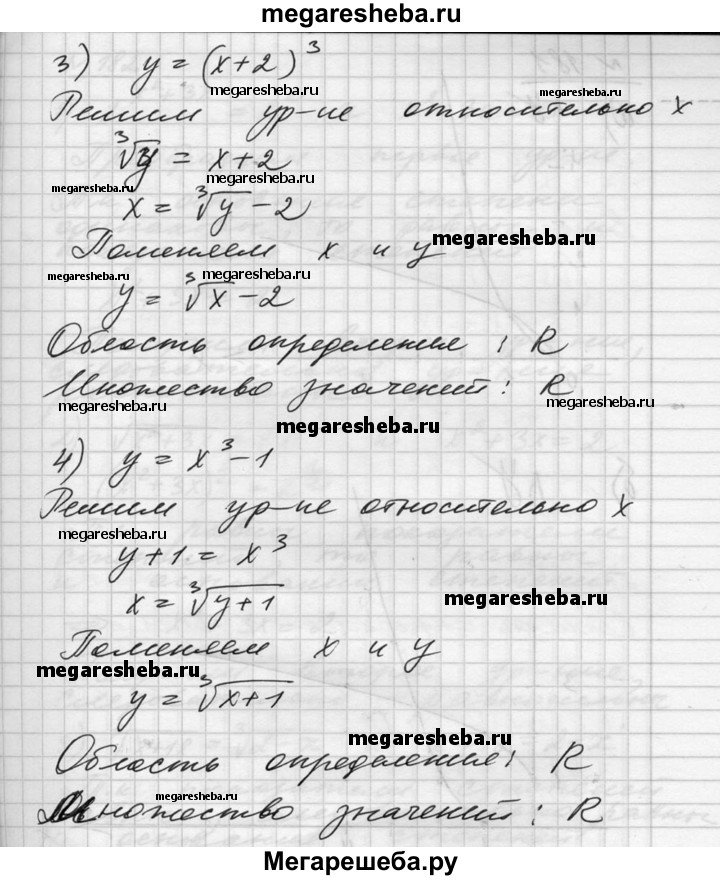 megaresheba.ru
3) y = (x+2)^3
megaresheba.ru
Решим ур-ие относительно x
megaresheba.ru
∛y = x+2
megaresheba.ru
megaresheba.ru
x = ∛y - 2
Поменяем x и y
megaresheba.ru
megaresheba.ru
megaresheba.ru
y = ∛x - 2
Область определения : R
Множество значений : R
megaresheba.ru
megaresheba.ru
megaresheba.ru
4) y = x^3 - 1
Решим ур-ие относительно x
megaresheba.ru
y + 1 = x^3
x = ∛(y+1)
megaresheba.ru
Поменяем x и y
megaresheba.ru
y = ∛(x+1)
megaresheba.ru
Область определения : R
megaresheba.ru
Множество значений : R
Мегарешеба.ру